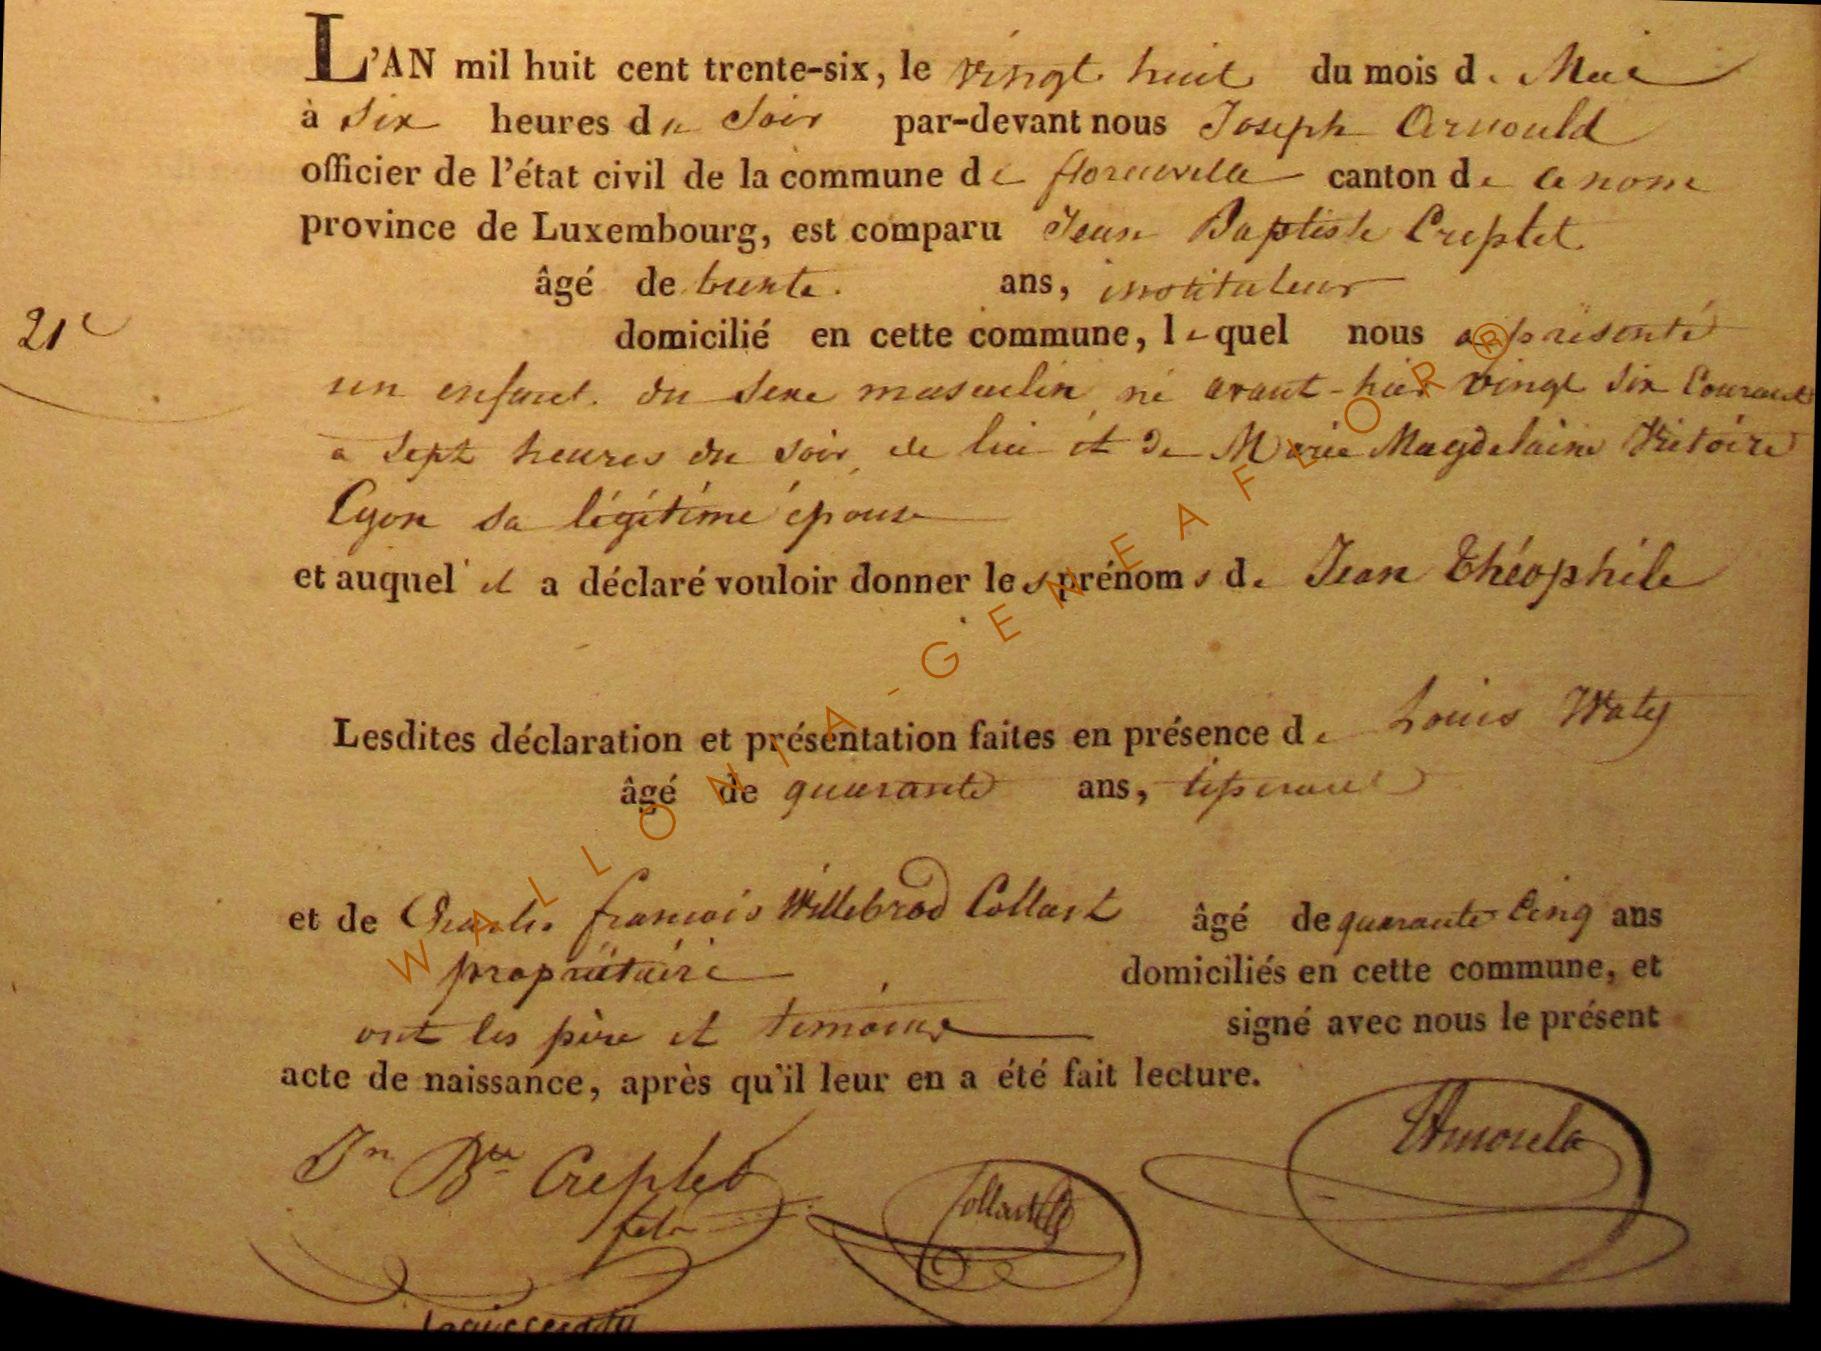 L'AN mil huit cent trente-six, le vingt huit du mois de Mai
à six heures du Soir par-devant nous Joseph Arnould
officier de l'état civil de la commune de florenville canton de ce nom
province de Luxembourg, est comparu Jean Baptiste Creplet
âgé de trente ans, instituteur
21e
domicilié en cette commune, lequel nous a présenté
un enfant du sexe masculin né avant-hier vingt six Courant
a sept heures du soir, de lui et de Marie Magdelaine Victoire
Cyon sa légitime épouse
et auquel il a déclaré vouloir donner les prénoms de Jean Théophile
Lesdites déclaration et présentation faites en présence de Louis Waty
âgé de quarante ans, tisserand
et de Charles francois Willebrod Collart âgé de quarante cinq ans
propriétaire domiciliés en cette commune, et
ont les père et témoins signé avec nous le présent
acte de naissance, après qu'il leur en a été fait lecture.
Jn Bte Creplet
Collart
Arnould
WALLONIA-GENEAFLOR ®